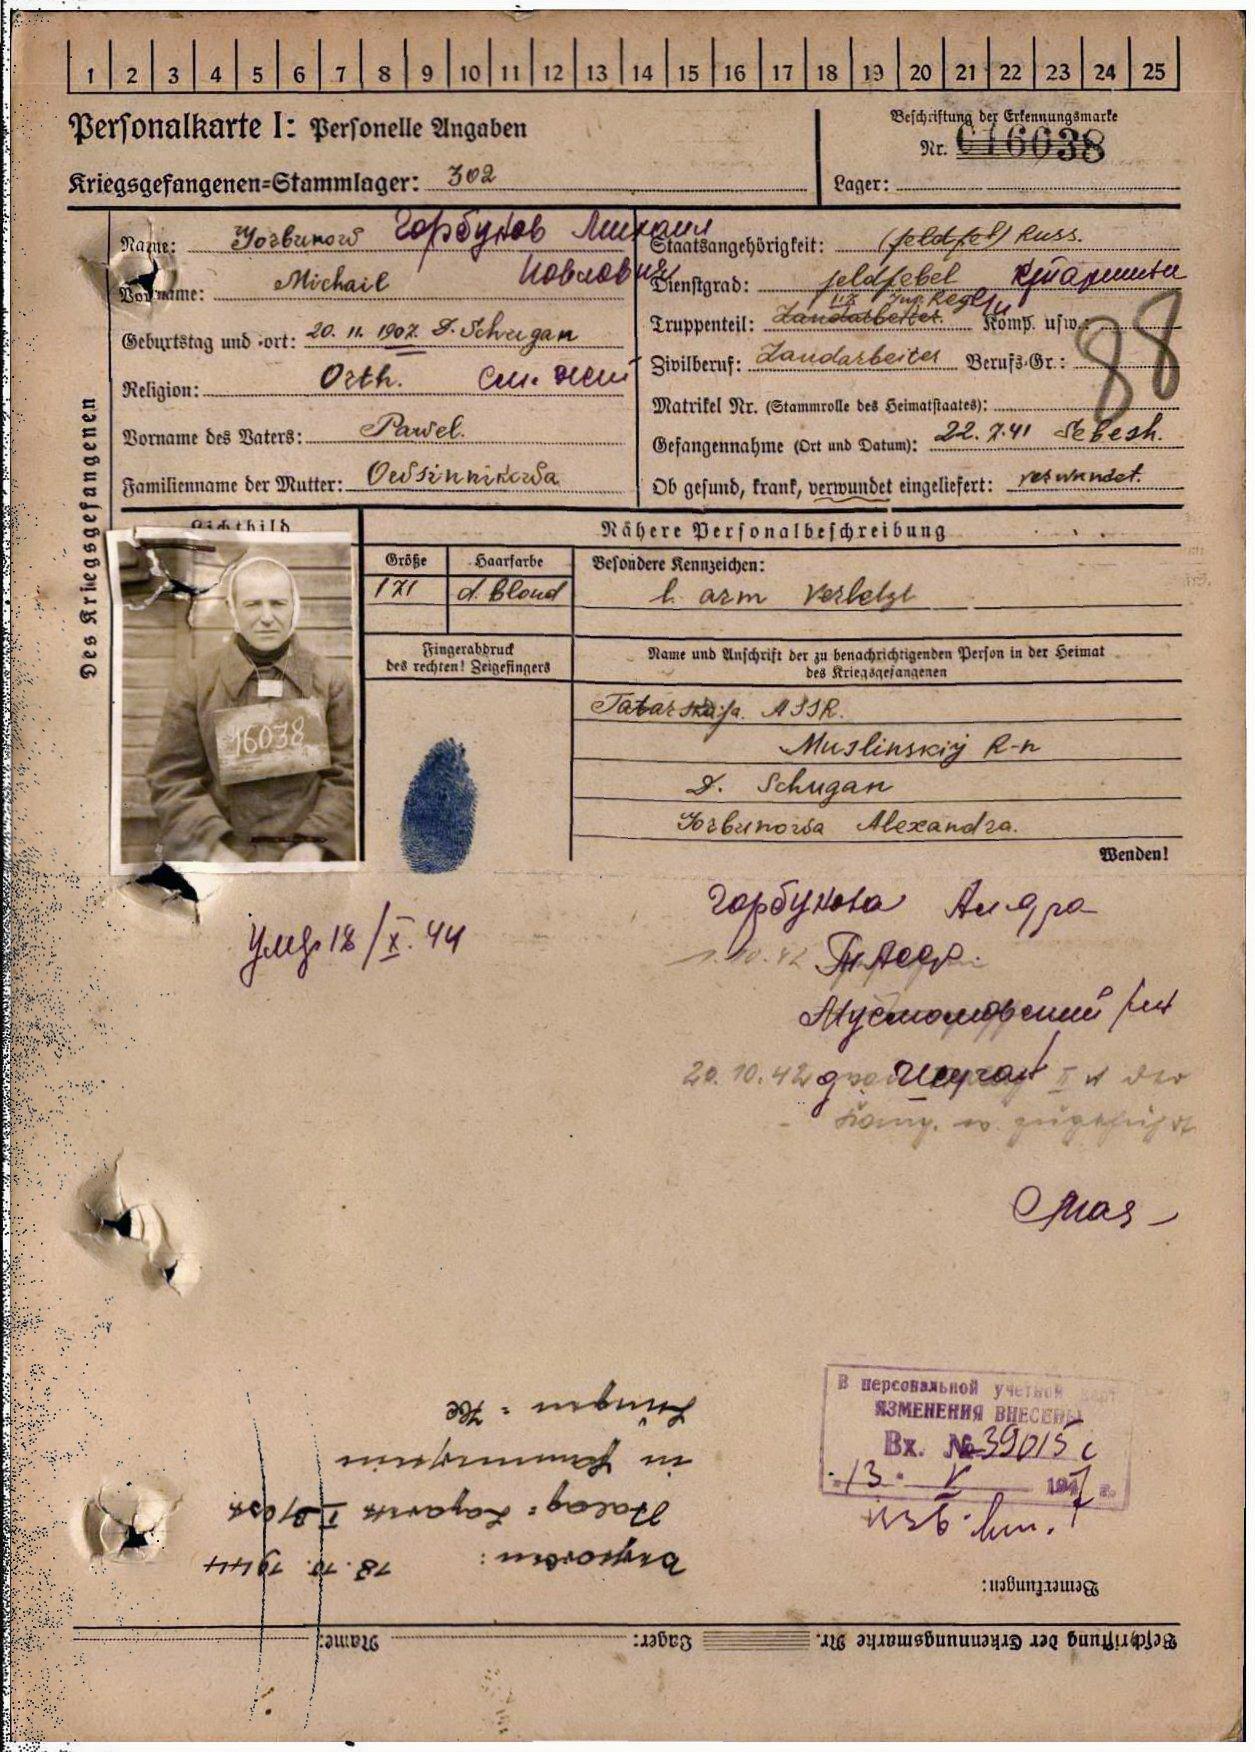 1 2 3 4 5 6 7 8 9 10 11 12 13 14 15 16 17 18 19 20 21 22 23 24 25
Personalkarte I: Personelle Angaben
Kriegsgefangenen=Stammlager: 302
Beschriftung der Erkennungsmarke
Nr. 16038
Lager:
Des Kriegsgefangenen
Name: Gorbunow Горбунов Михаил
Vorname: Michail Повлович
Geburtstag und -ort: 20. 11. 1907. D. Schugan
Religion: Orth.
Vorname des Vaters: Pawel.
Familienname der Mutter: Owsinnikowa
Staatsangehörigkeit: (feldfel) Russ.
Dienstgrad: feldfebel
Truppenteil: Landarbeiter. Komp. usw.:
Zivilberuf: Landarbeiter Berufs-Gr.:
88
Matrikel Nr. (Stammrolle des Heimatstaates):
Gefangennahme (Ort und Datum): 22. 7. 41 Sebesh.
Ob gesund, krank, verwundet eingeliefert: verwundet.
Lichtbild
16038
Nähere Personalbeschreibung
Größe Haarfarbe Besondere Kennzeichen:
171 d. blond l. arm verletzt
Fingerabdruck
des rechten! Zeigefingers
Name und Anschrift der zu benachrichtigenden Person in der Heimat
des Kriegsgefangenen
Tatarskaja. ASSR.
Muslinskij R-n
D. Schugan
Gorbunowa Alexandra.
Wenden!
Горбунова
Т. АССР.
д. Шуган
20.10.42
Умер 18/X. 44
В персональной учетной
ИЗМЕНЕНИЯ ВНЕСЕНЫ
Вх. № 39015 с
13. V 1947 г.
Bemerkungen:
18. 10. 1944
in
Beschriftung der Erkennungsmarke Nr. Lager: Name: